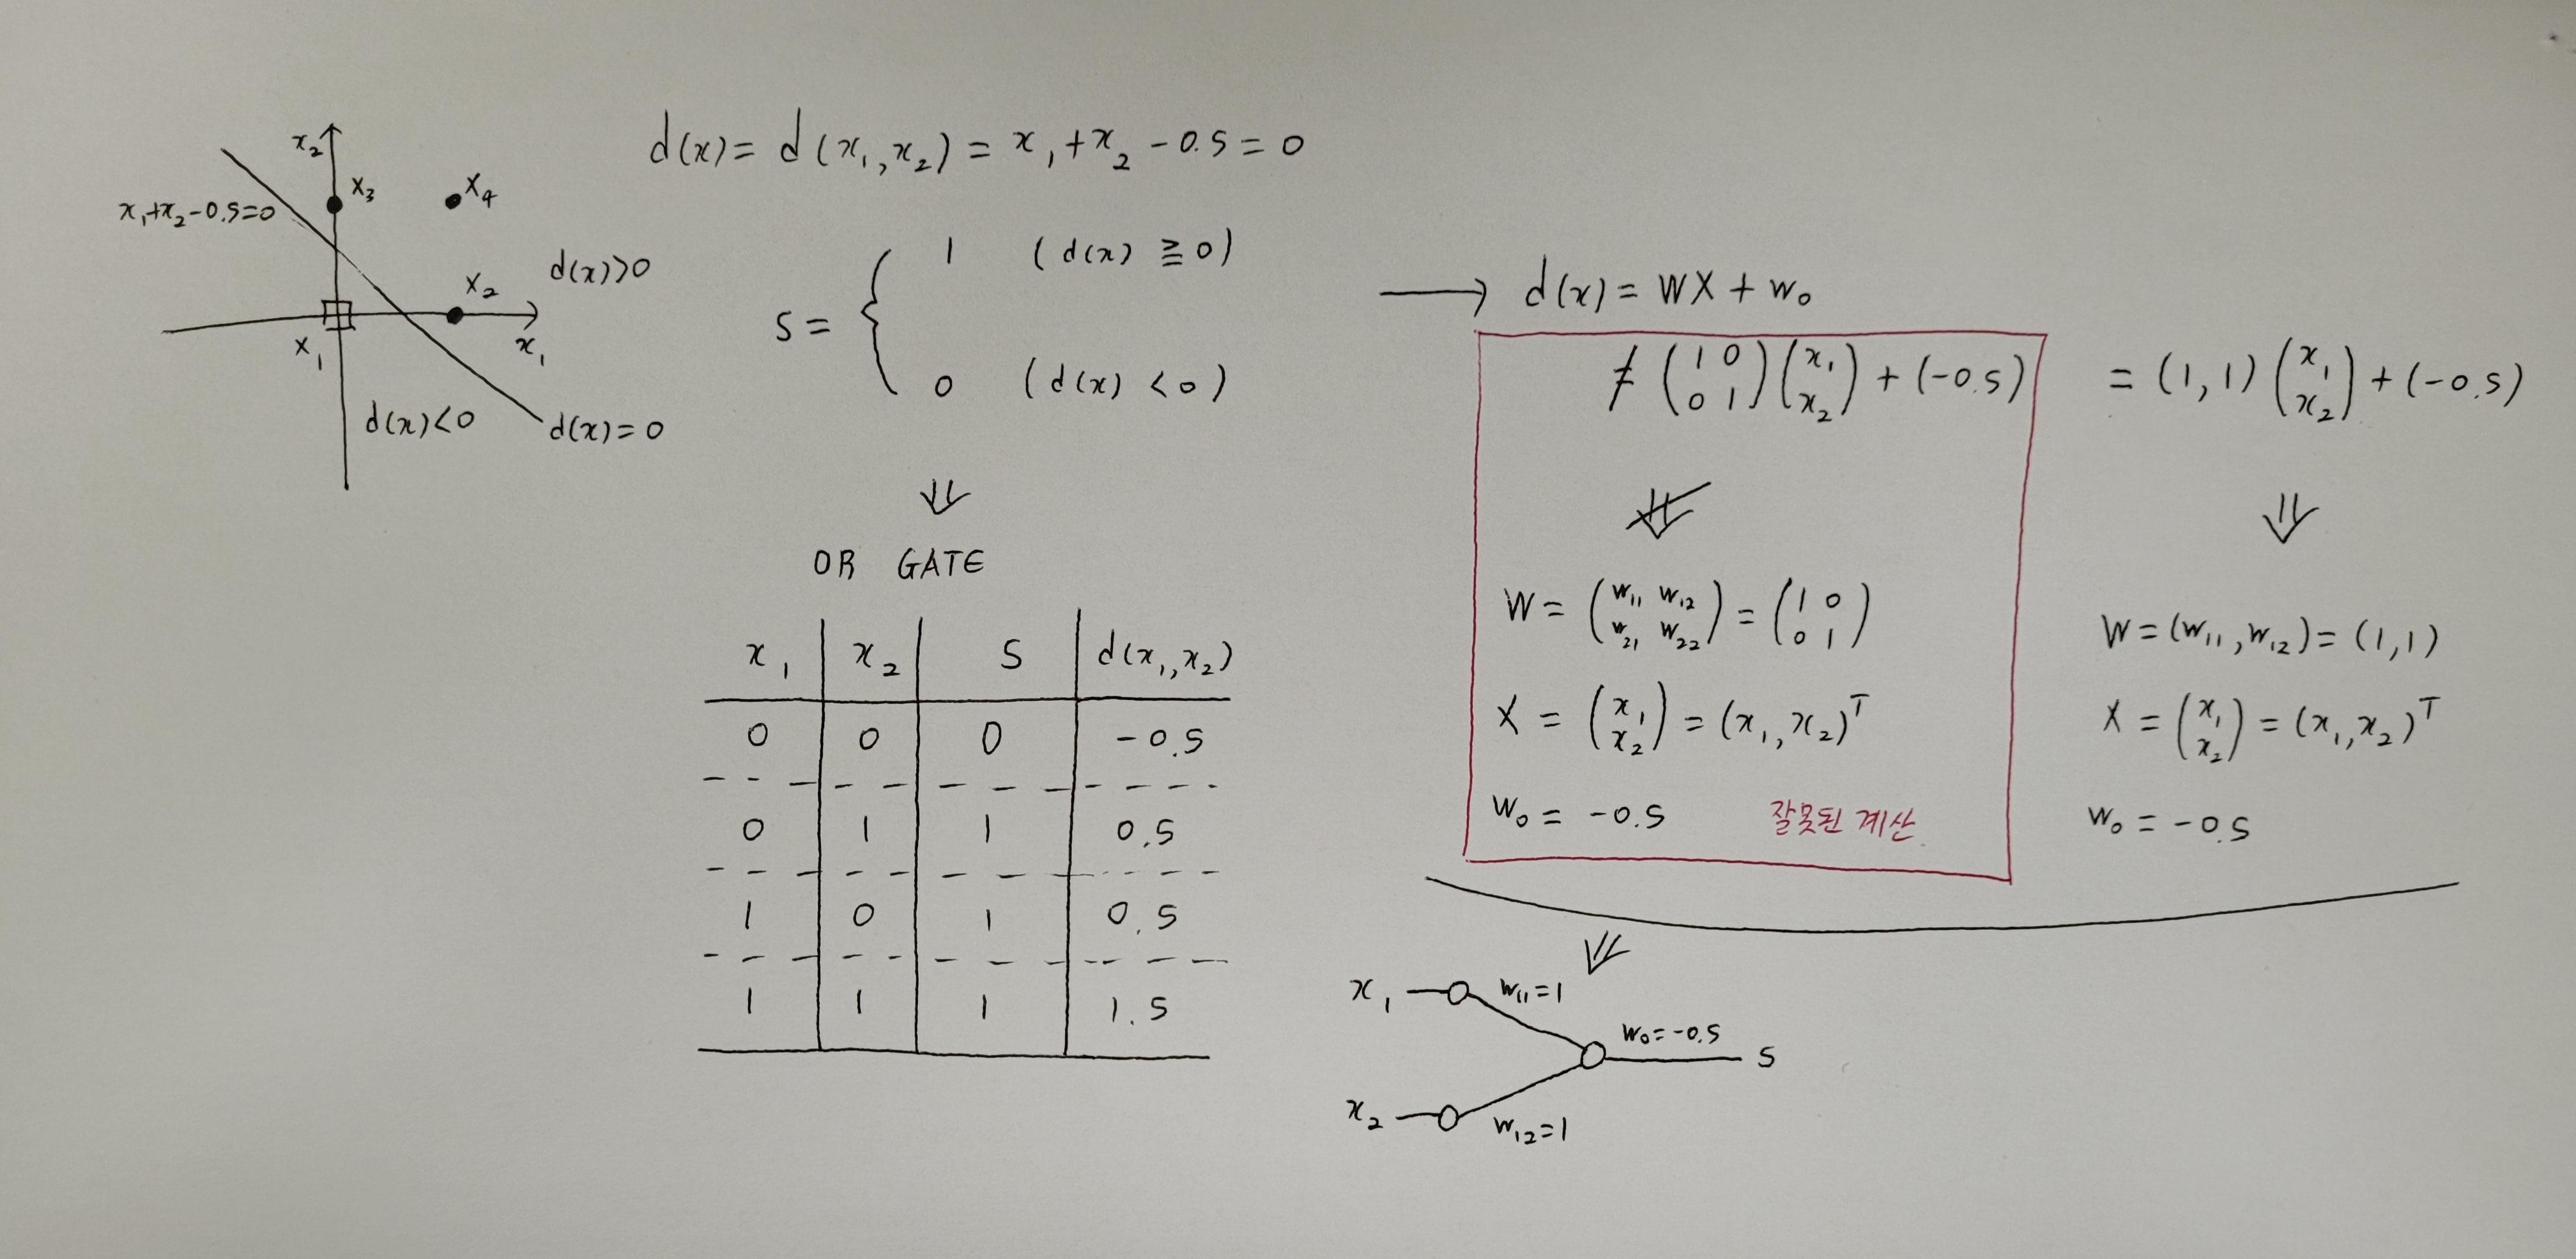 d(x) = d(x₁,x₂) = x₁+x₂-0.5 = 0
x₂
X₃
X₄
x₁+x₂-0.5=0
d(x)>0
X₂
X₁
x₁
d(x)<0
d(x)=0
S = { 1 (d(x) ≧ 0)
0 (d(x) < 0)
⇓
OR GATE
x₁ x₂ S d(x₁,x₂)
0 0 0 -0.5
0 1 1 0.5
1 0 1 0.5
1 1 1 1.5
→ d(x) = WX + w₀
≠ (1 0
0 1) (x₁
x₂) + (-0.5)
⇓
W = (w₁₁ w₁₂
w₂₁ w₂₂) = (1 0
0 1)
X = (x₁
x₂) = (x₁,x₂)ᵀ
w₀ = -0.5 잘못된 계산
= (1,1) (x₁
x₂) + (-0.5)
⇓
W = (w₁₁,w₁₂) = (1,1)
X = (x₁
x₂) = (x₁,x₂)ᵀ
w₀ = -0.5
⇓
x₁ w₁₁=1
w₀=-0.5
S
x₂ w₁₂=1